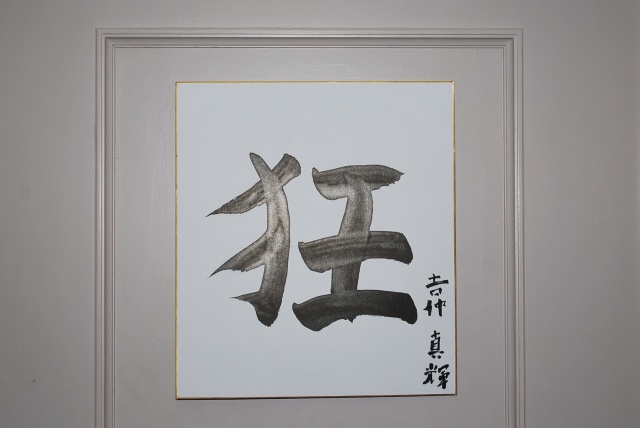 狂
吉仲 真輝